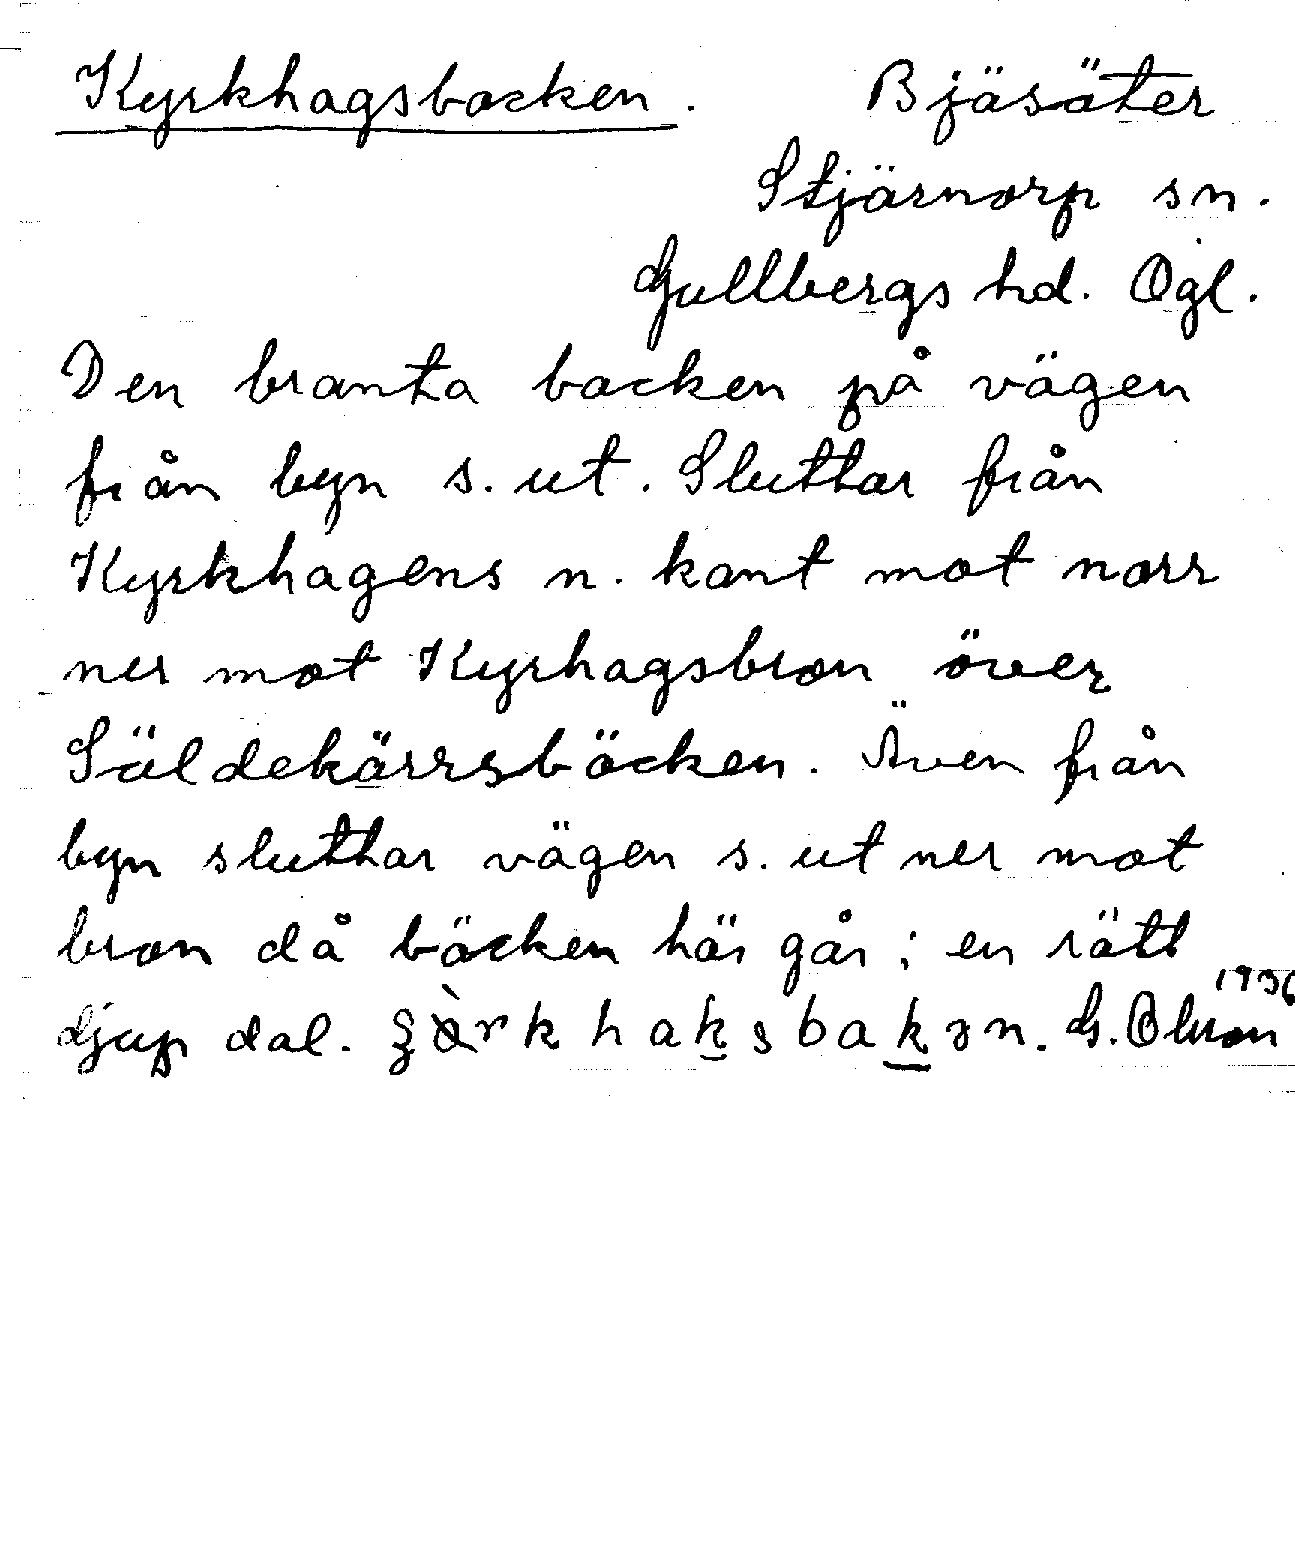 Kyrkhagsbacken. Bjäsäter
Stjärnorp sn.
Gullbergs hd. Ögl.
Den branta backen på vägen
från byn s. ut. Sluttar från
Kyrkhagens n. kant mot norr
ner mot Kyrhagsbron över
Säldekärrsbäcken. Även från
byn sluttar vägen s. ut ner mot
bron då bäcken här går i en rätt
djup dal. G. Olsson 1936